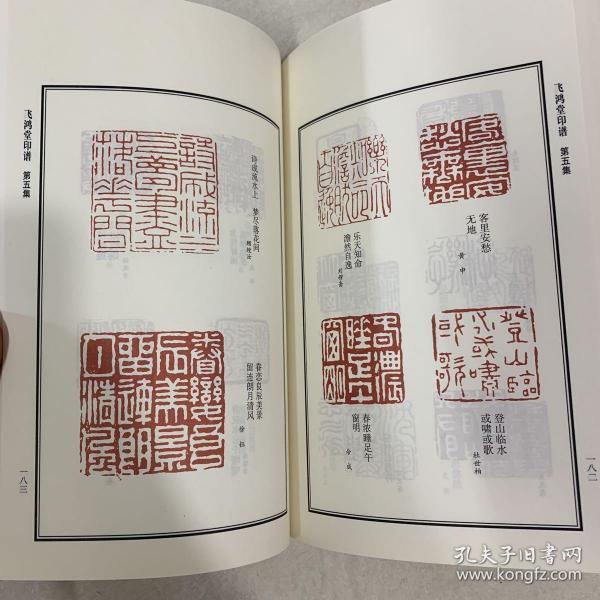 飞鸿堂印谱 第五集
客里安愁
无地
黄申
乐天知命
澹然自逸
登山临水
或啸或歌
杜世柏
春浓睡足午
窗明
一八二
飞鸿堂印谱 第五集
诗成流水上 梦尽落花间
眷恋良辰美景
留连朗月清风
徐钰
一八三
孔夫子旧书网
www.kongfz.com